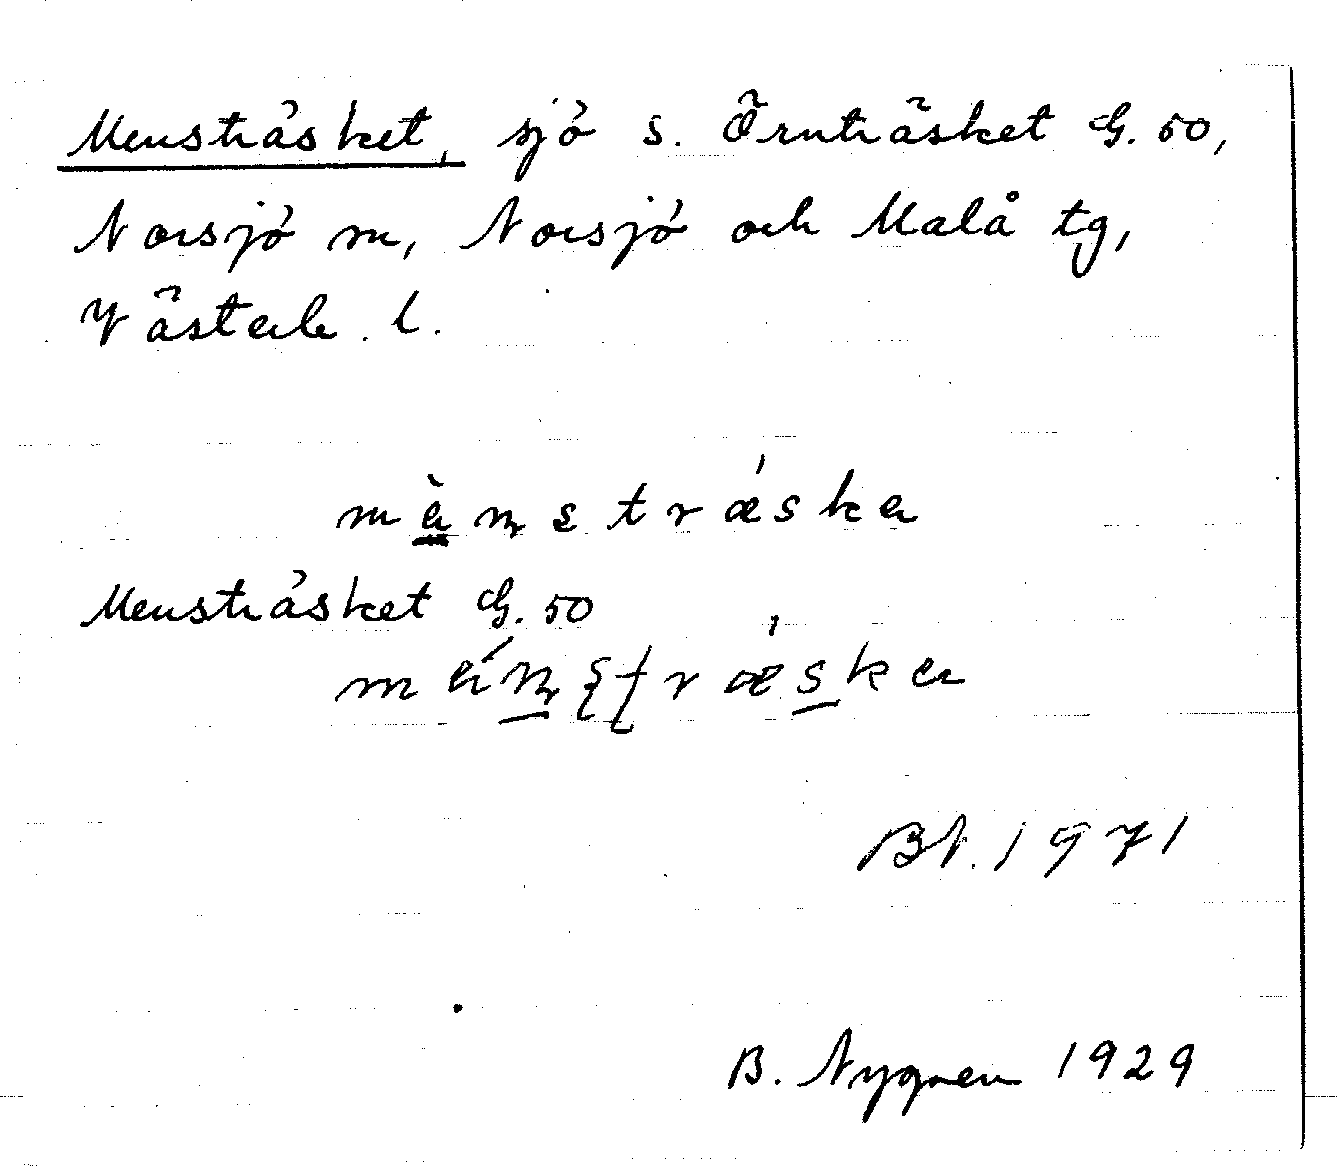 Mensträsket, sjö s. Örnträsket G. 50,
Norsjö sn, Norsjö och Malå tg,
Västerb. l.
mànstrǽska
Mensträsket G. 50
Bt. 1971
B. Nygren 1929